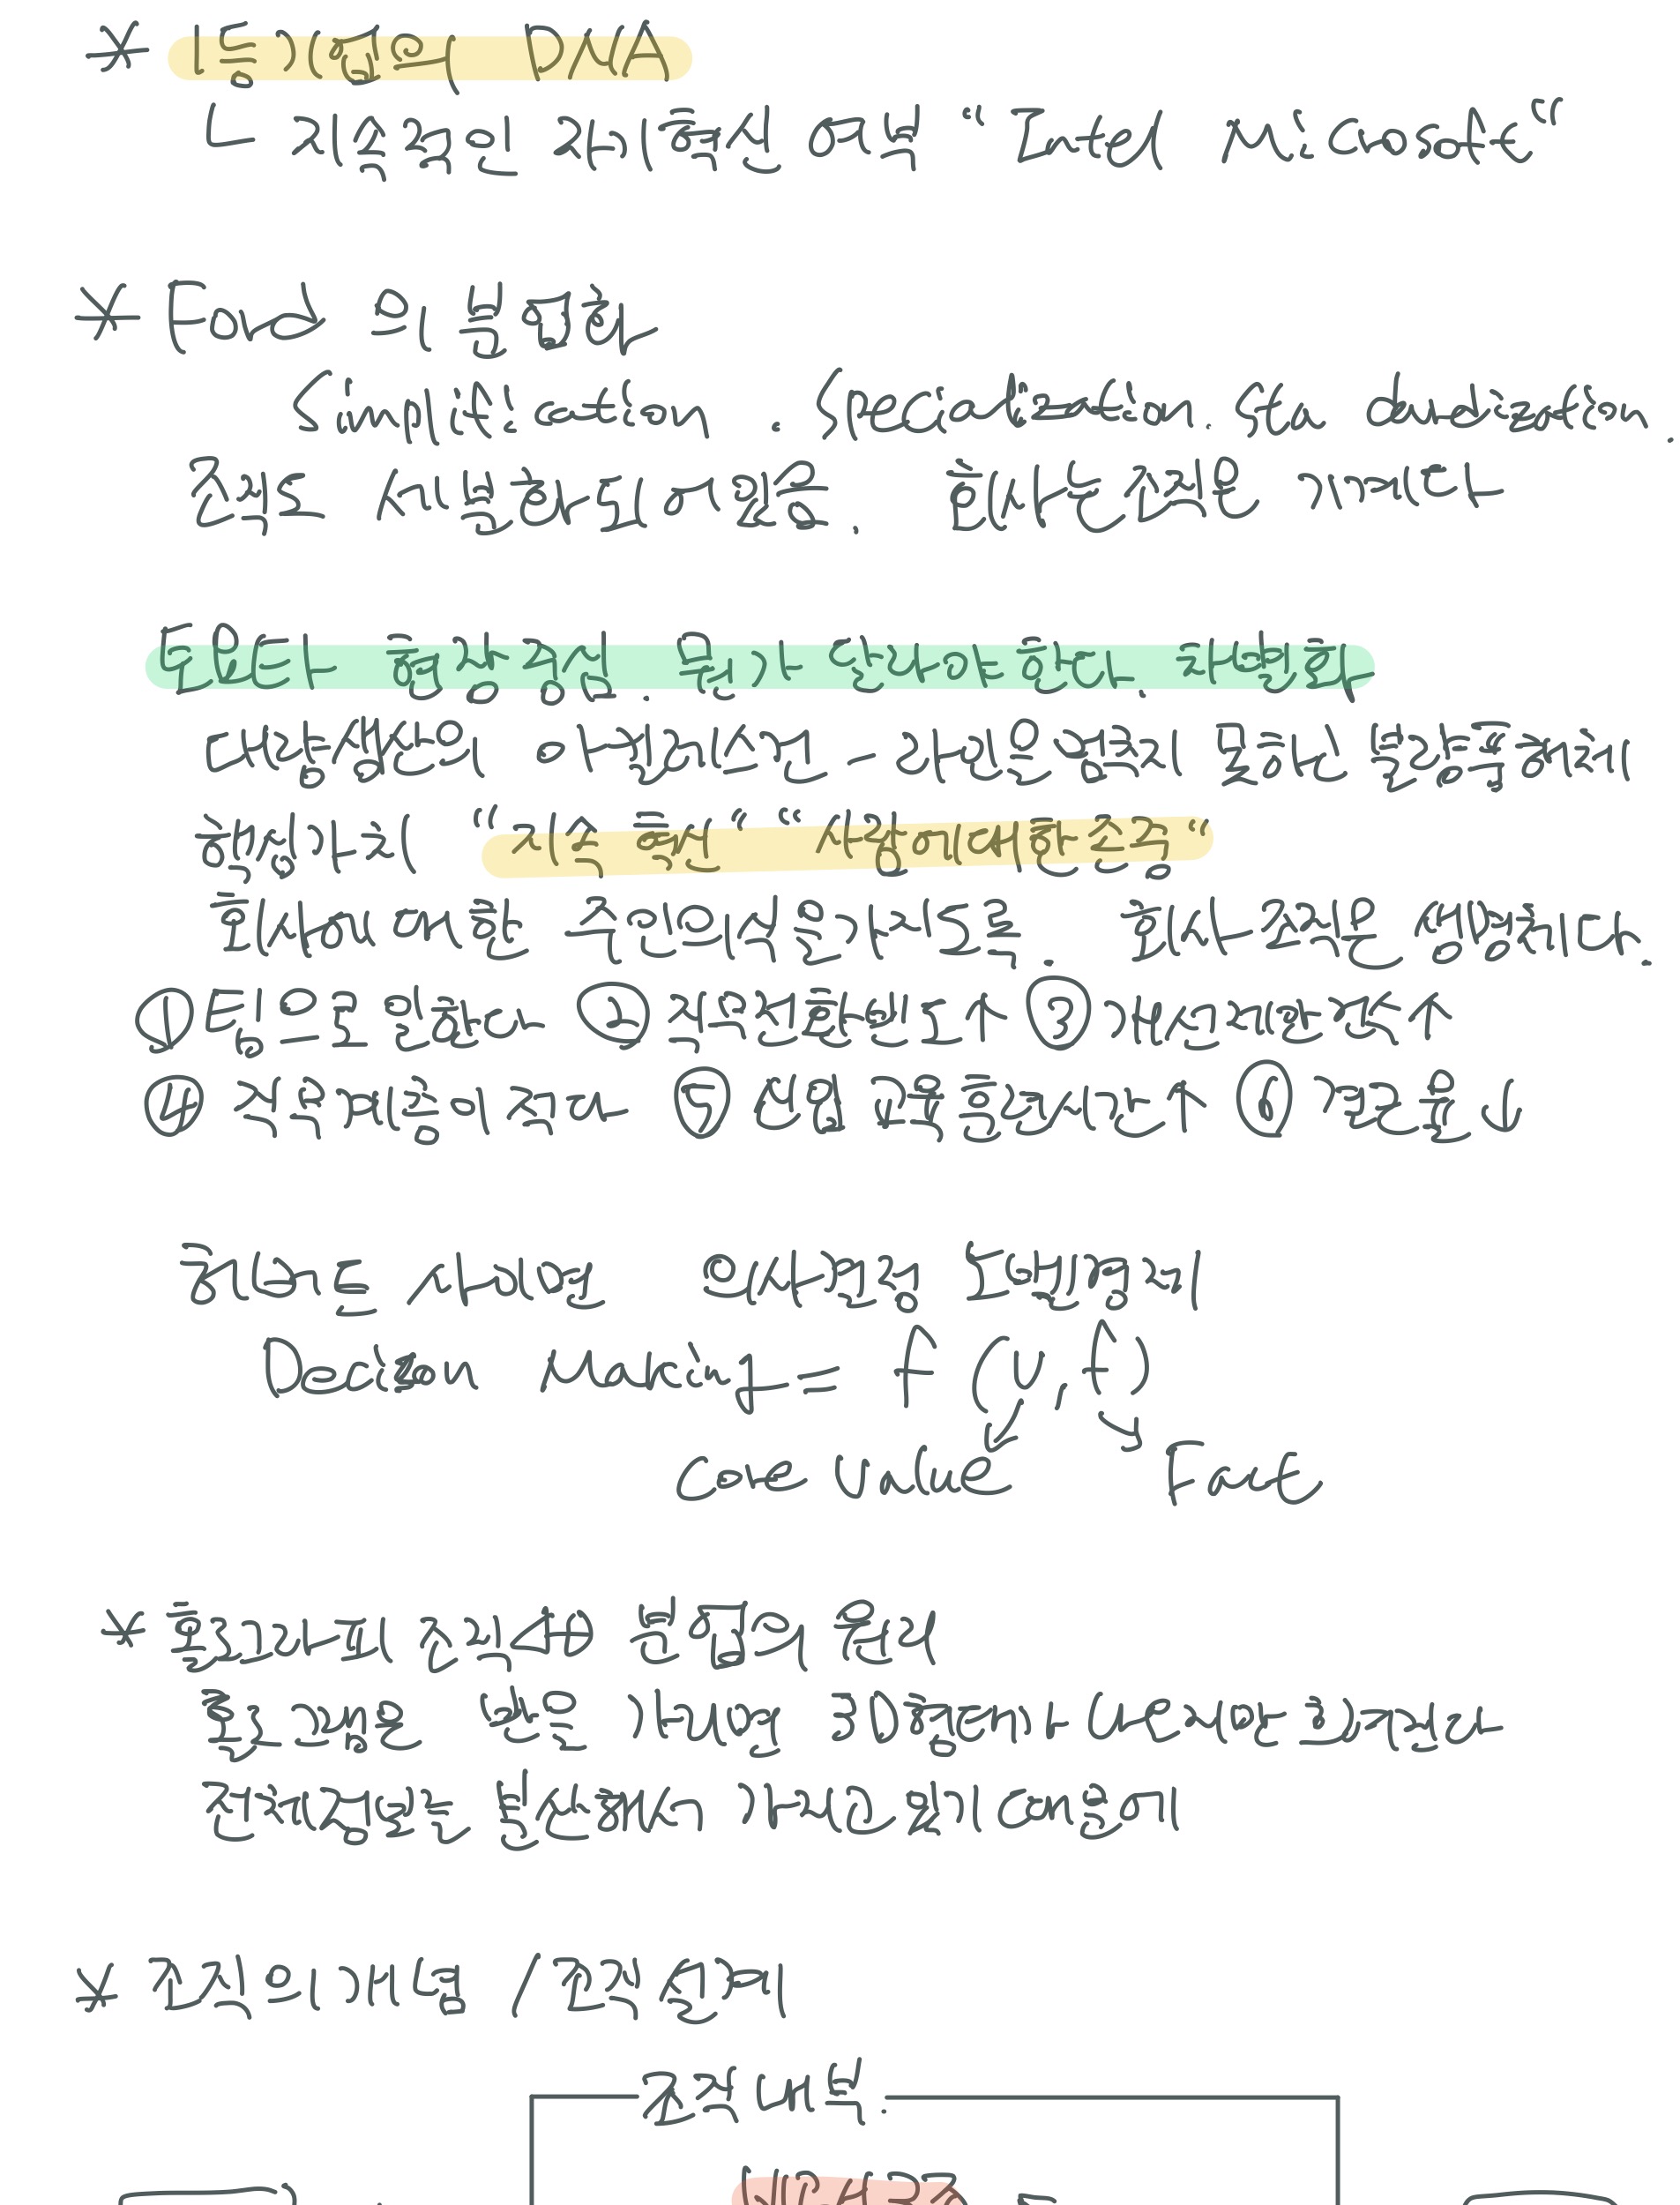 * 1등기업의 DNA
ㄴ 지속적인 자기혁신 여부 "Intel Microsoft"
* Ford 의 분업화
Simplification . Specialization. Standardization.
조직도 세분화되어있음. 회사는조직은 기계다
도요타 현장중심. 뭔가 알아야 한다. 차별화
대량생산의 아킬레스건 - 라인운영중지 모든 활동이 중지
핵심가치 "지속 혁신" "사람에대한 존중"
회사에 대한 주인의식을가지도록. 회사 조직은 생명체다.
① 팀으로 일한다 ② 직무전환빈도↑ ③ 개선제안건수↑
④ 직책계층이 적다 ⑤ 신입 교육훈련시간↑ ⑥ 결근율↓
허버드 사이먼 의사결정 노벨경제
Decision Making = f (v, f)
core value Fact
* 홀로그라피 조직 분업의 원리
홀로그램은 빛을 가하면 3D형태가 나온 화면이다
전체정보는 분산해서 가지고 있기 때문에
* 조직의개념 / 조직설계
조직내부.